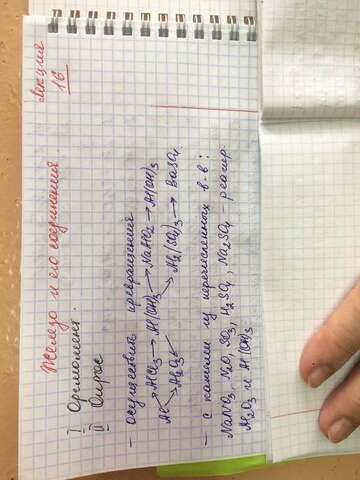 Лекция
16
Железо и его соединения.
I Оргмомент.
II Опрос
– осуществить превращения
AlCl3 → Al(OH)3 → NaAlO2 → Al(OH)3
Al
Al2O3 → Al2(SO4)3 → BaSO4
– с какими из перечисленных в-в:
NaNO3, N2O, SO3, H2SO4, Na2SO4 – реагир.
Al2O3 и Al(OH)3